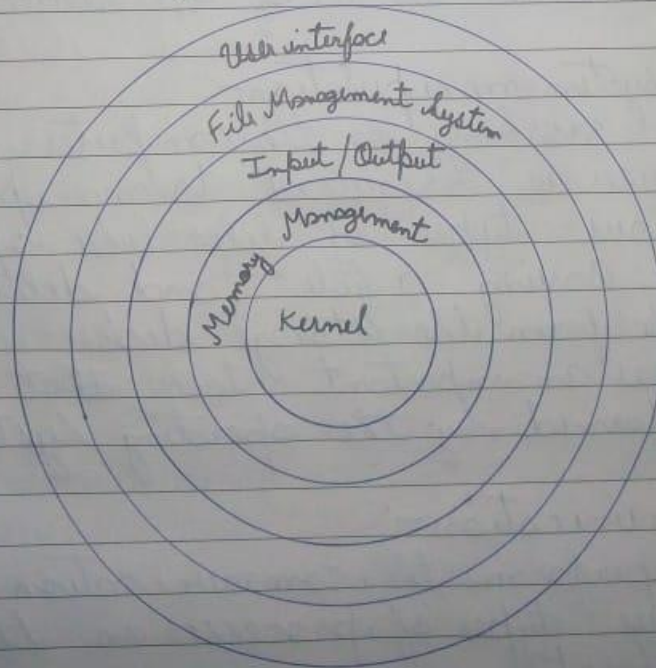 User interface
File Management System
Input / Output
Memory Management
Kernel